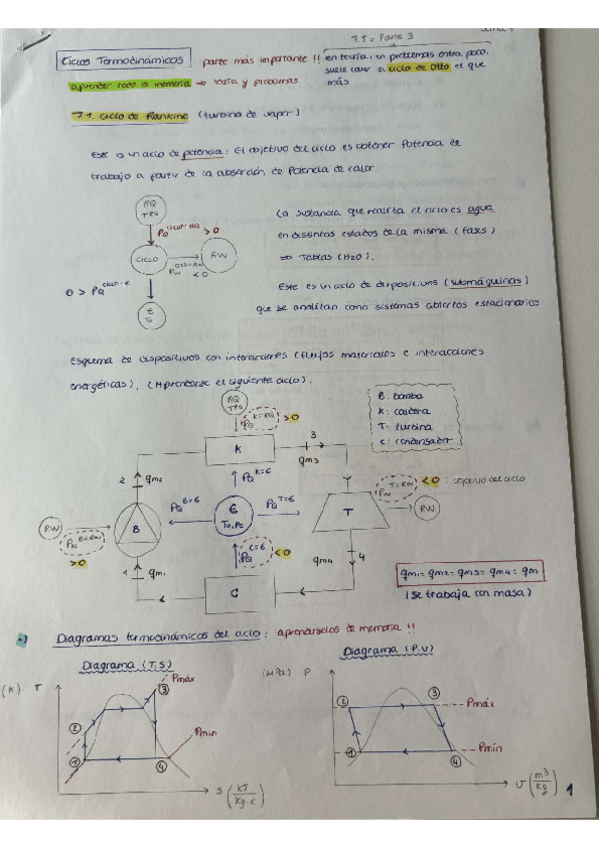 7.5 = Parte 3
Ciclos Termodinámicos parte más importante !! en teoría, en problemas entra poco,
suele caer el ciclo de Otto el que
más
aprender todo de memoria ⇒ teoría y problemas
7.1. Ciclo de Rankine (turbina de vapor)
Este es un ciclo de potencia: El objetivo del ciclo es obtener Potencia de
trabajo a partir de la absorción de Potencia de calor.
RQ
TRQ
PQ > 0
CICLO
RW
PW < 0
0 > PQ
E
To
La sustancia que recorre el ciclo es agua
en distintos estados de la misma (fases)
⇒ Tablas (H2O).
Este es un ciclo de dispositivos (submáquinas)
que se analizan como sistemas abiertos estacionarios
Esquema de dispositivos con interacciones (flujos materiales e interacciones
energéticas). (Aprenderse el siguiente ciclo).
B: bomba
K: caldera
T: turbina
C: condensador
RQ
TRQ
PQ K-RQ > 0
K
3
qm3
2
qm2
PQ K-E
PW T-RW < 0 : objetivo del ciclo
RW
B
PQ B-E
E
To, Po
PQ T-E
T
RW
PW B-RW
> 0
PQ C-E < 0
4
qm4
1
qm1
C
qm1 = qm2 = qm3 = qm4 = qm
(se trabaja con masa)
•) Diagramas termodinámicos del ciclo: aprendérselos de memoria !!
Diagrama (T,S)
Diagrama (P,V)
(K) T
Pmáx
Pmin
1
2
3
4
S (kJ/kg·K)
(MPa) P
Pmáx
Pmín
1
2
3
4
v (m3/kg)
1